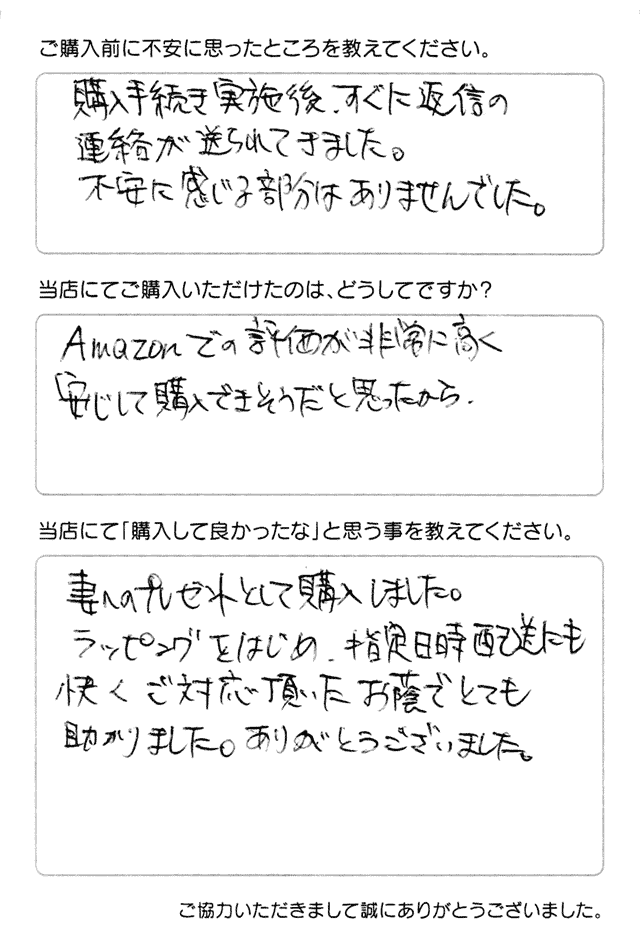 ご購入前に不安に思ったところを教えてください。
購入手続き実施後、すぐに返信の
連絡が送られてきました。
不安に感じる部分はありませんでした。
当店にてご購入いただけたのは、どうしてですか?
Amazonでの評価が非常に高く
安じして購入できそうだと思ったから.
当店にて「購入して良かったな」と思う事を教えてください。
妻へのプレゼントとして購入しました。
ラッピングをはじめ、指定日時配送にも
快くご対応頂いたお蔭でとても
助かりました。ありがとうございました。
ご協力いただきまして誠にありがとうございました。